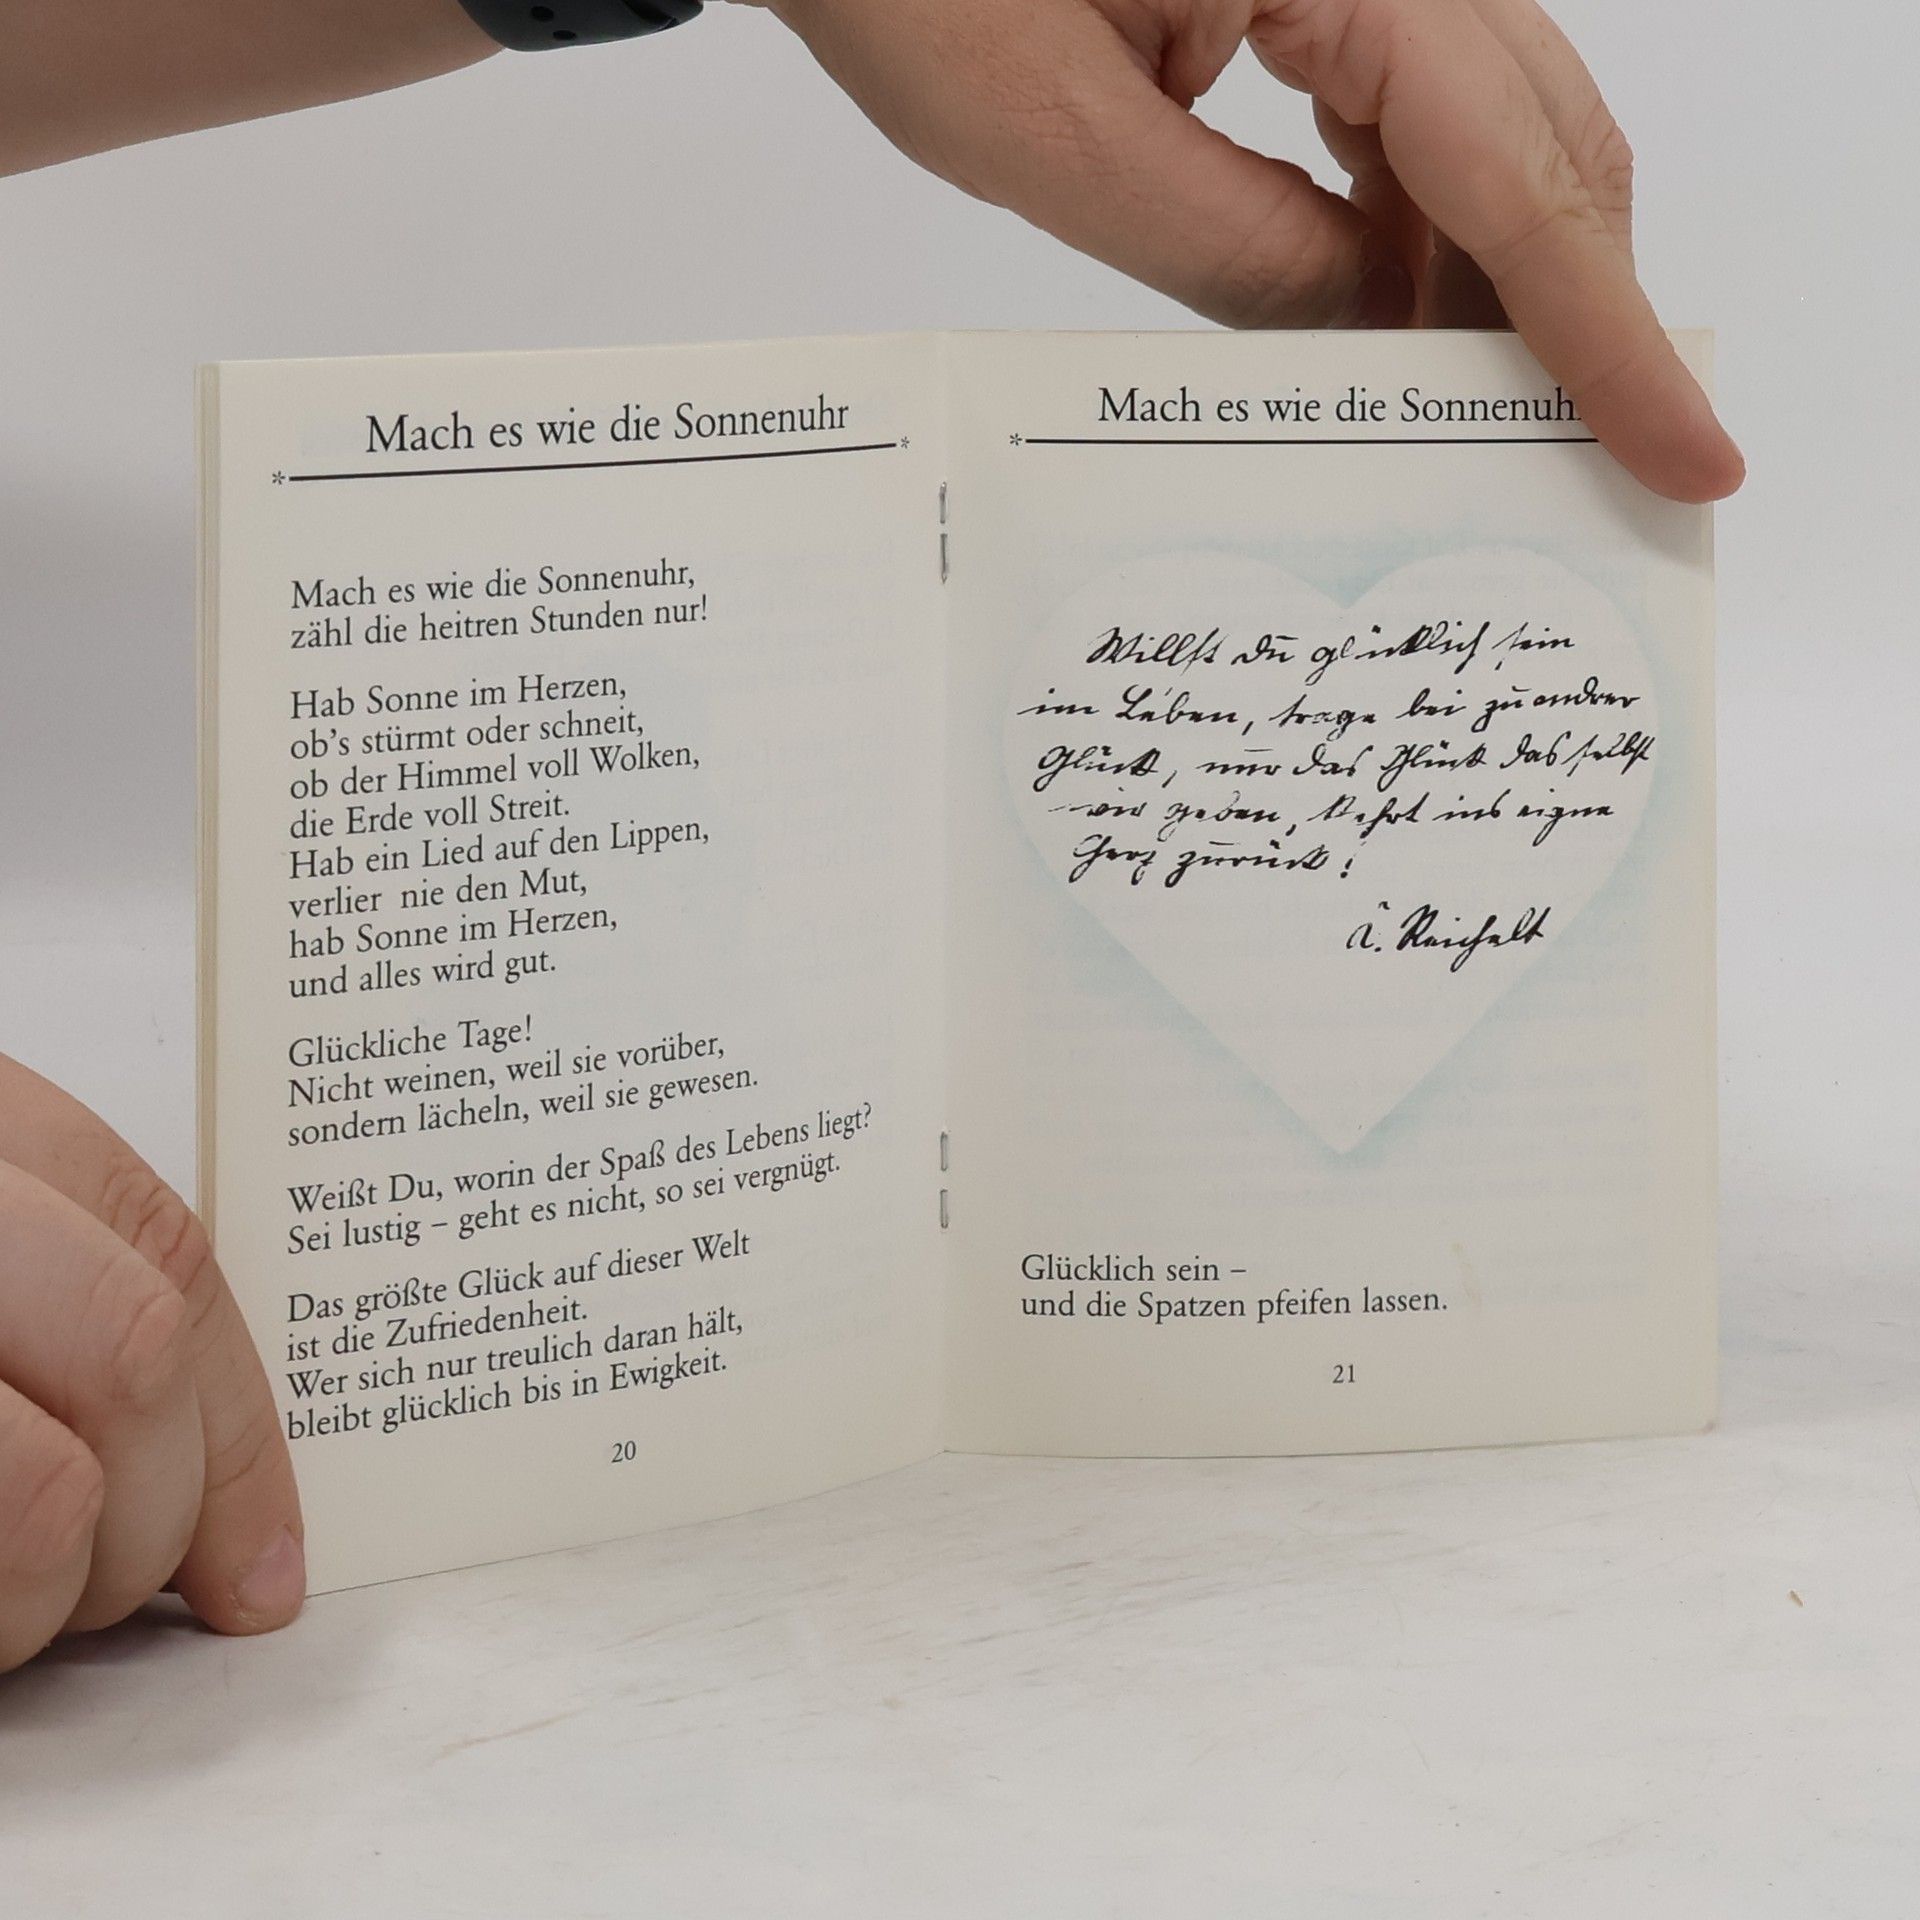 Mach es wie die Sonnenuhr
Mach es wie die Sonnenuhr,
zähl die heitren Stunden nur!
Hab Sonne im Herzen,
ob's stürmt oder schneit,
ob der Himmel voll Wolken,
die Erde voll Streit.
Hab ein Lied auf den Lippen,
verlier nie den Mut,
hab Sonne im Herzen,
und alles wird gut.
Glückliche Tage!
Nicht weinen, weil sie vorüber,
sondern lächeln, weil sie gewesen.
Weißt Du, worin der Spaß des Lebens liegt?
Sei lustig – geht es nicht, so sei vergnügt.
Das größte Glück auf dieser Welt
ist die Zufriedenheit.
Wer sich nur treulich daran hält,
bleibt glücklich bis in Ewigkeit.
20
Mach es wie die Sonnenuh
Willst du glücklich sein
im Leben, trage bei zu andrer
Glück, nur das Glück das selbst
wir geben, kehrt ins eigne
Herz zurück!
Reichelt
Glücklich sein –
und die Spatzen pfeifen lassen.
21